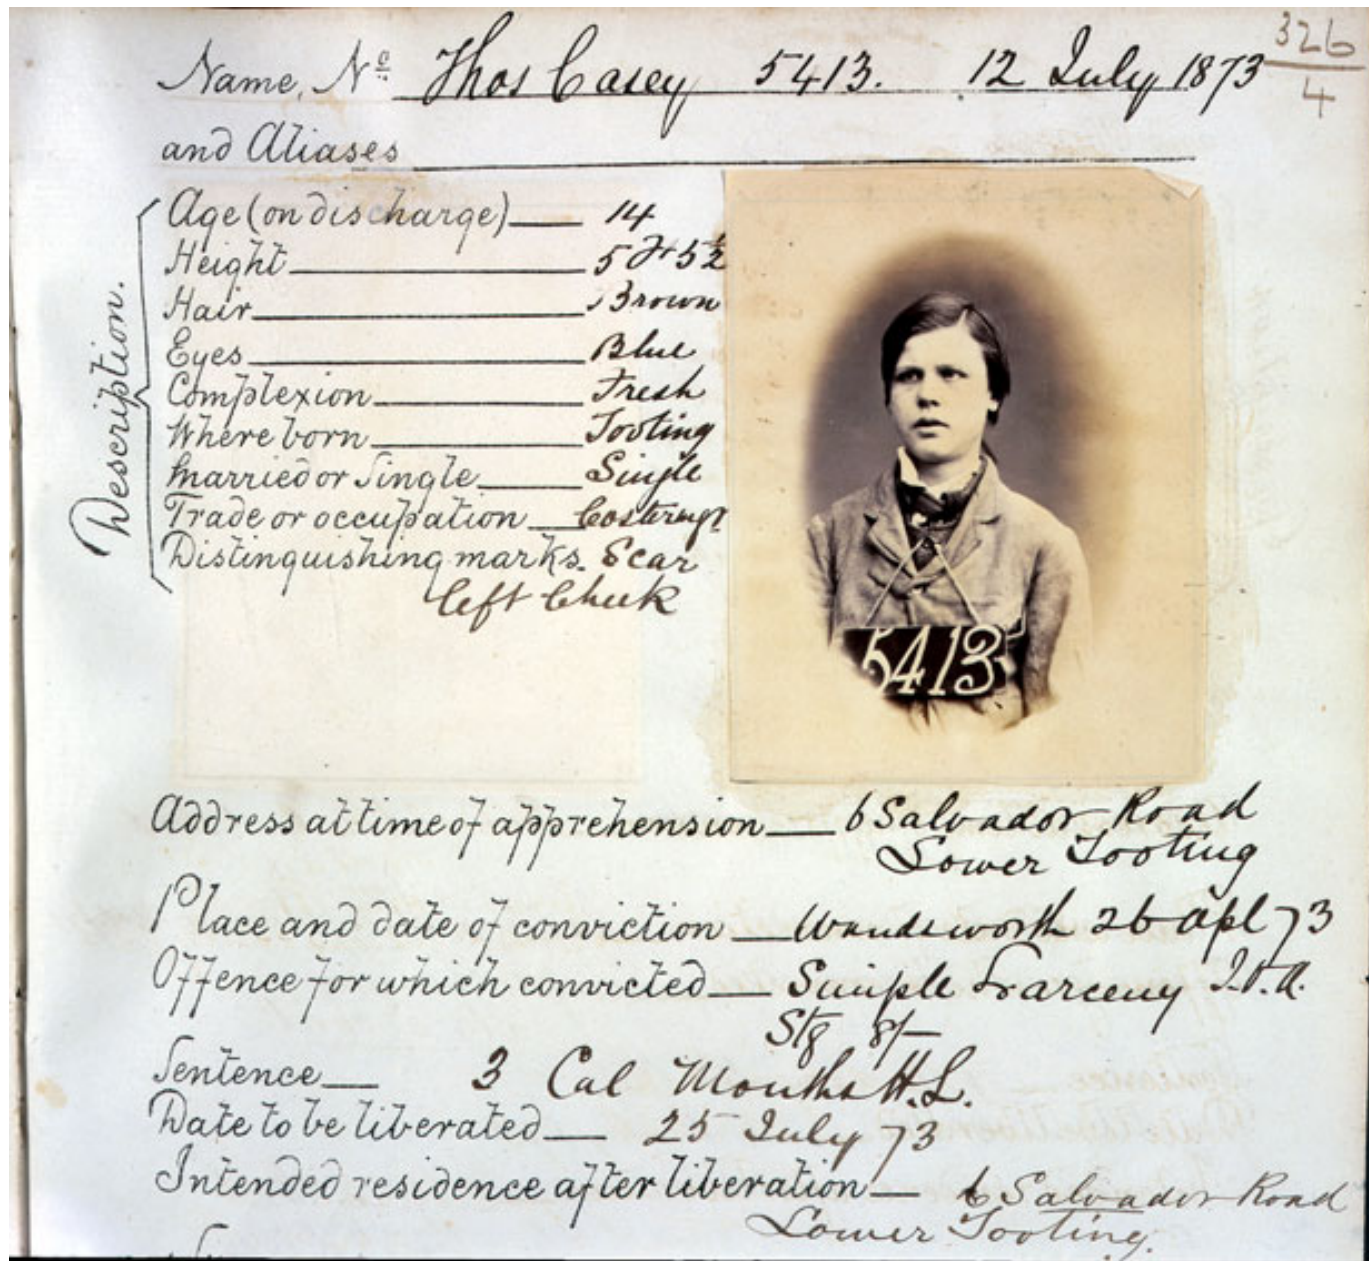 Name, Nº Thos Casey 5413. 12 July 1873
326
4
and Aliases
Description.
Age (on discharge) 14
Height 5 Ft 5½
Hair Brown
Eyes Blue
Complexion Fresh
Where born Tooting
Married or Single Single
Trade or occupation Costermgr
Distinguishing marks. Scar
left Cheek
5413
Address at time of apprehension 6 Salvador Road
Lower Tooting
Place and date of conviction Wandsworth 26 Apl 73
Offence for which convicted Simple Larceny J.O.A.
Stg 8/-
Sentence 3 Cal Months H.L.
Date to be liberated 25 July 73
Intended residence after liberation 6 Salvador Road
Lower Tooting.